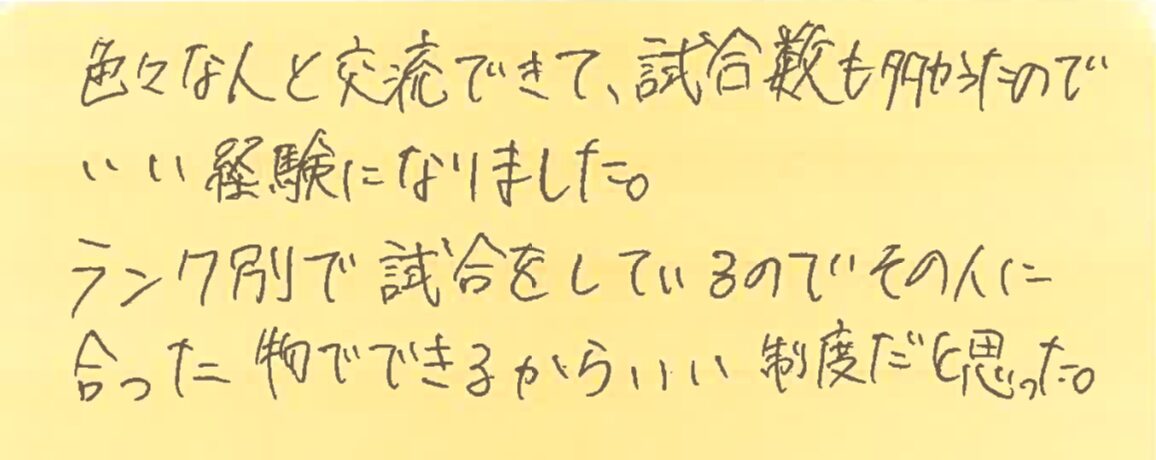 色々な人と交流できて、試合数も多かったので
いい経験になりました。
ランク別で試合をしているのでその人に
合った物でできるからいい制度だと思った。